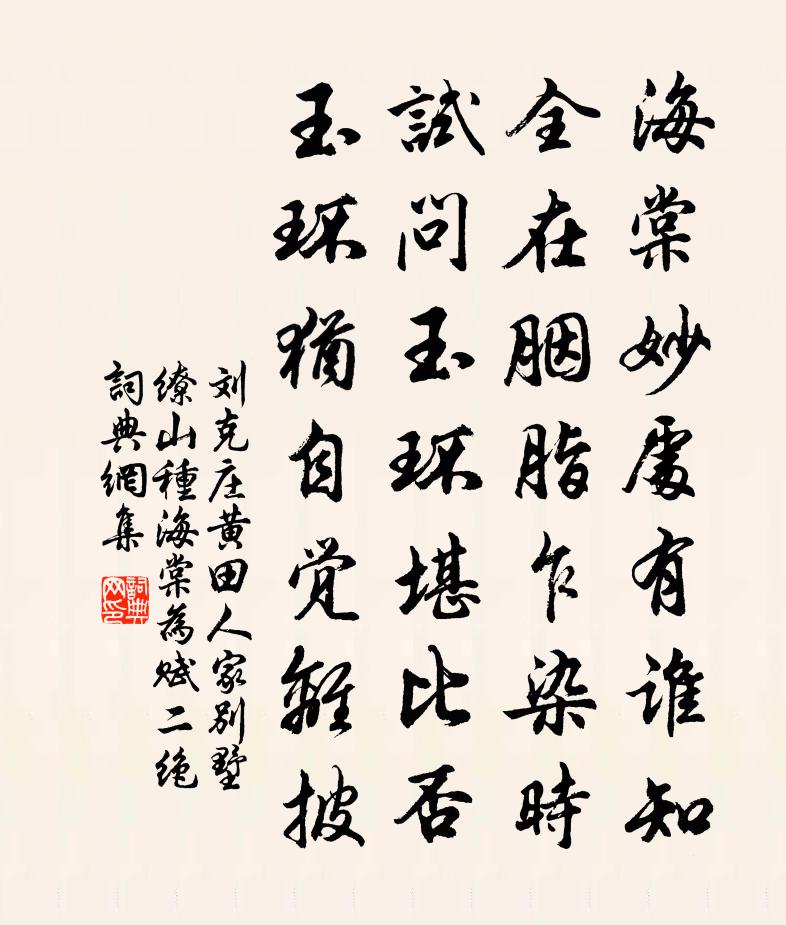 海棠妙處有谁知
全在胭脂乍染時
試問玉环堪比否
玉环猶自觉離披
刘克庄黄田人家别墅
缭山種海棠為赋二绝
詞典網集
詞典网印